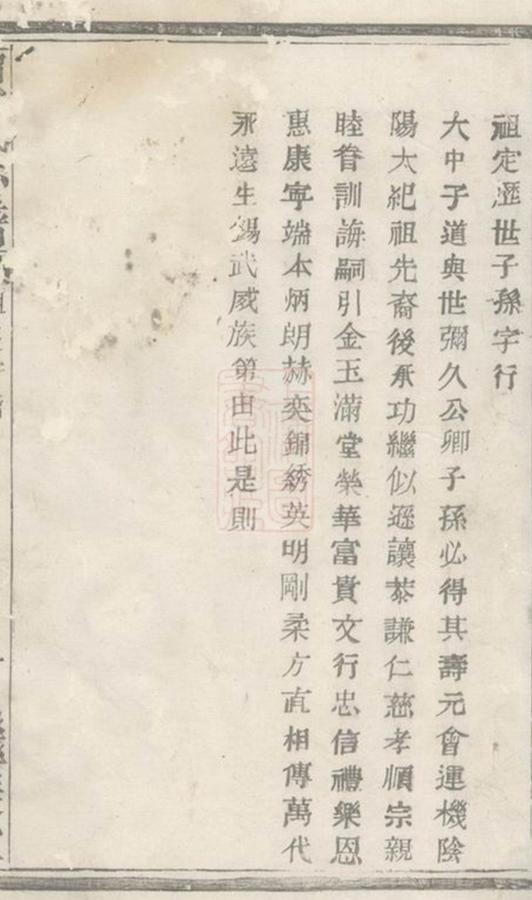 祖定歷世子孫字行
大中子道與世彌久公卿子孫必得其壽元會運機陰
陽太紀祖先裔後承功繼似遜讓恭謙仁慈孝順宗親
睦眷訓誨嗣引金玉滿堂榮華富貴文行忠信禮樂恩
惠康寧端本炳朗赫奕錦綉英明剛柔方直相傳萬代
永遠生錫武威族第由此是則